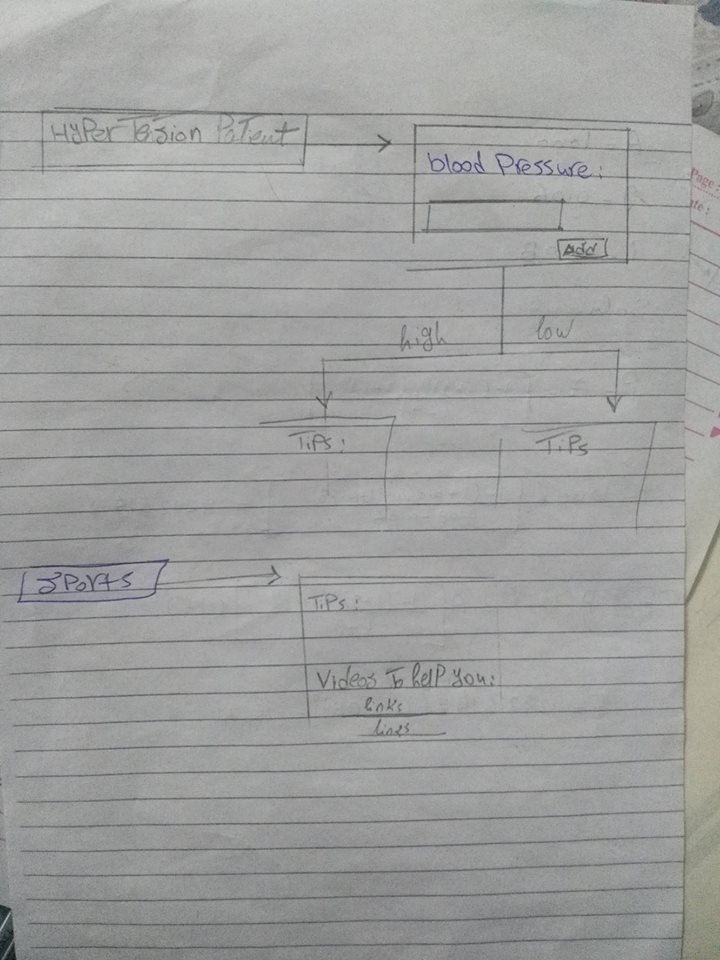 HyPer Tension Patient
blood Pressure:
Add
high
low
TiPs:
TiPs
SPorts
TiPs:
Videos To help you:
links
links